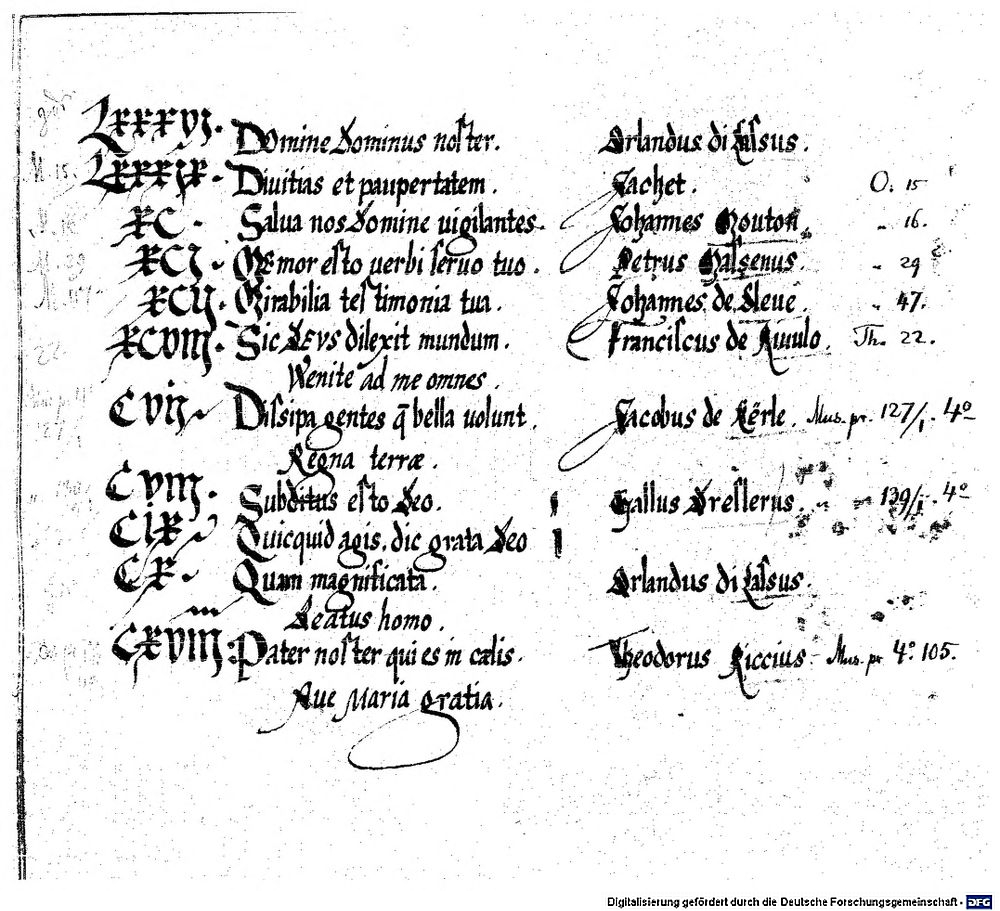 LXXXVI. Domine Dominus noſter. Orlandus di Laſsus.
LXXXIX. Diuitias et paupertatem. Jachet. O. 15
XC. Salua nos Domine uigilantes. Johannes Mouton. „ 16.
XCI. MEmor eſto uerbi ſeruo tuo. Petrus Maſsenus. „ 29
XCII. Mirabilia teſtimonia tua. Johannes de Cleue. „ 47.
XCVIII. Sic DEVS dilexit mundum. Franciſcus de Riuulo. Th. 22.
Venite ad me omnes.
CVII. Diſsipa gentes q̄ bella uolunt. Jacobus de Kërle. Mus. pr. 127/1. 4º
Regna terræ.
CVIII. Subditus eſto Deo. Gallus Dreſlerus. „ „ 139/1. 4º
CIX. Quicquid agis, dic grata Deo
CX. Quam magnificata. Orlandus di Laſsus.
Beatus homo.
CXVIII. Pater noſter qui es in cælis. Theodorus Riccius. Mus. pr 4º 105.
Aue Maria gratia.
Digitalisierung gefördert durch die Deutsche Forschungsgemeinschaft - DFG